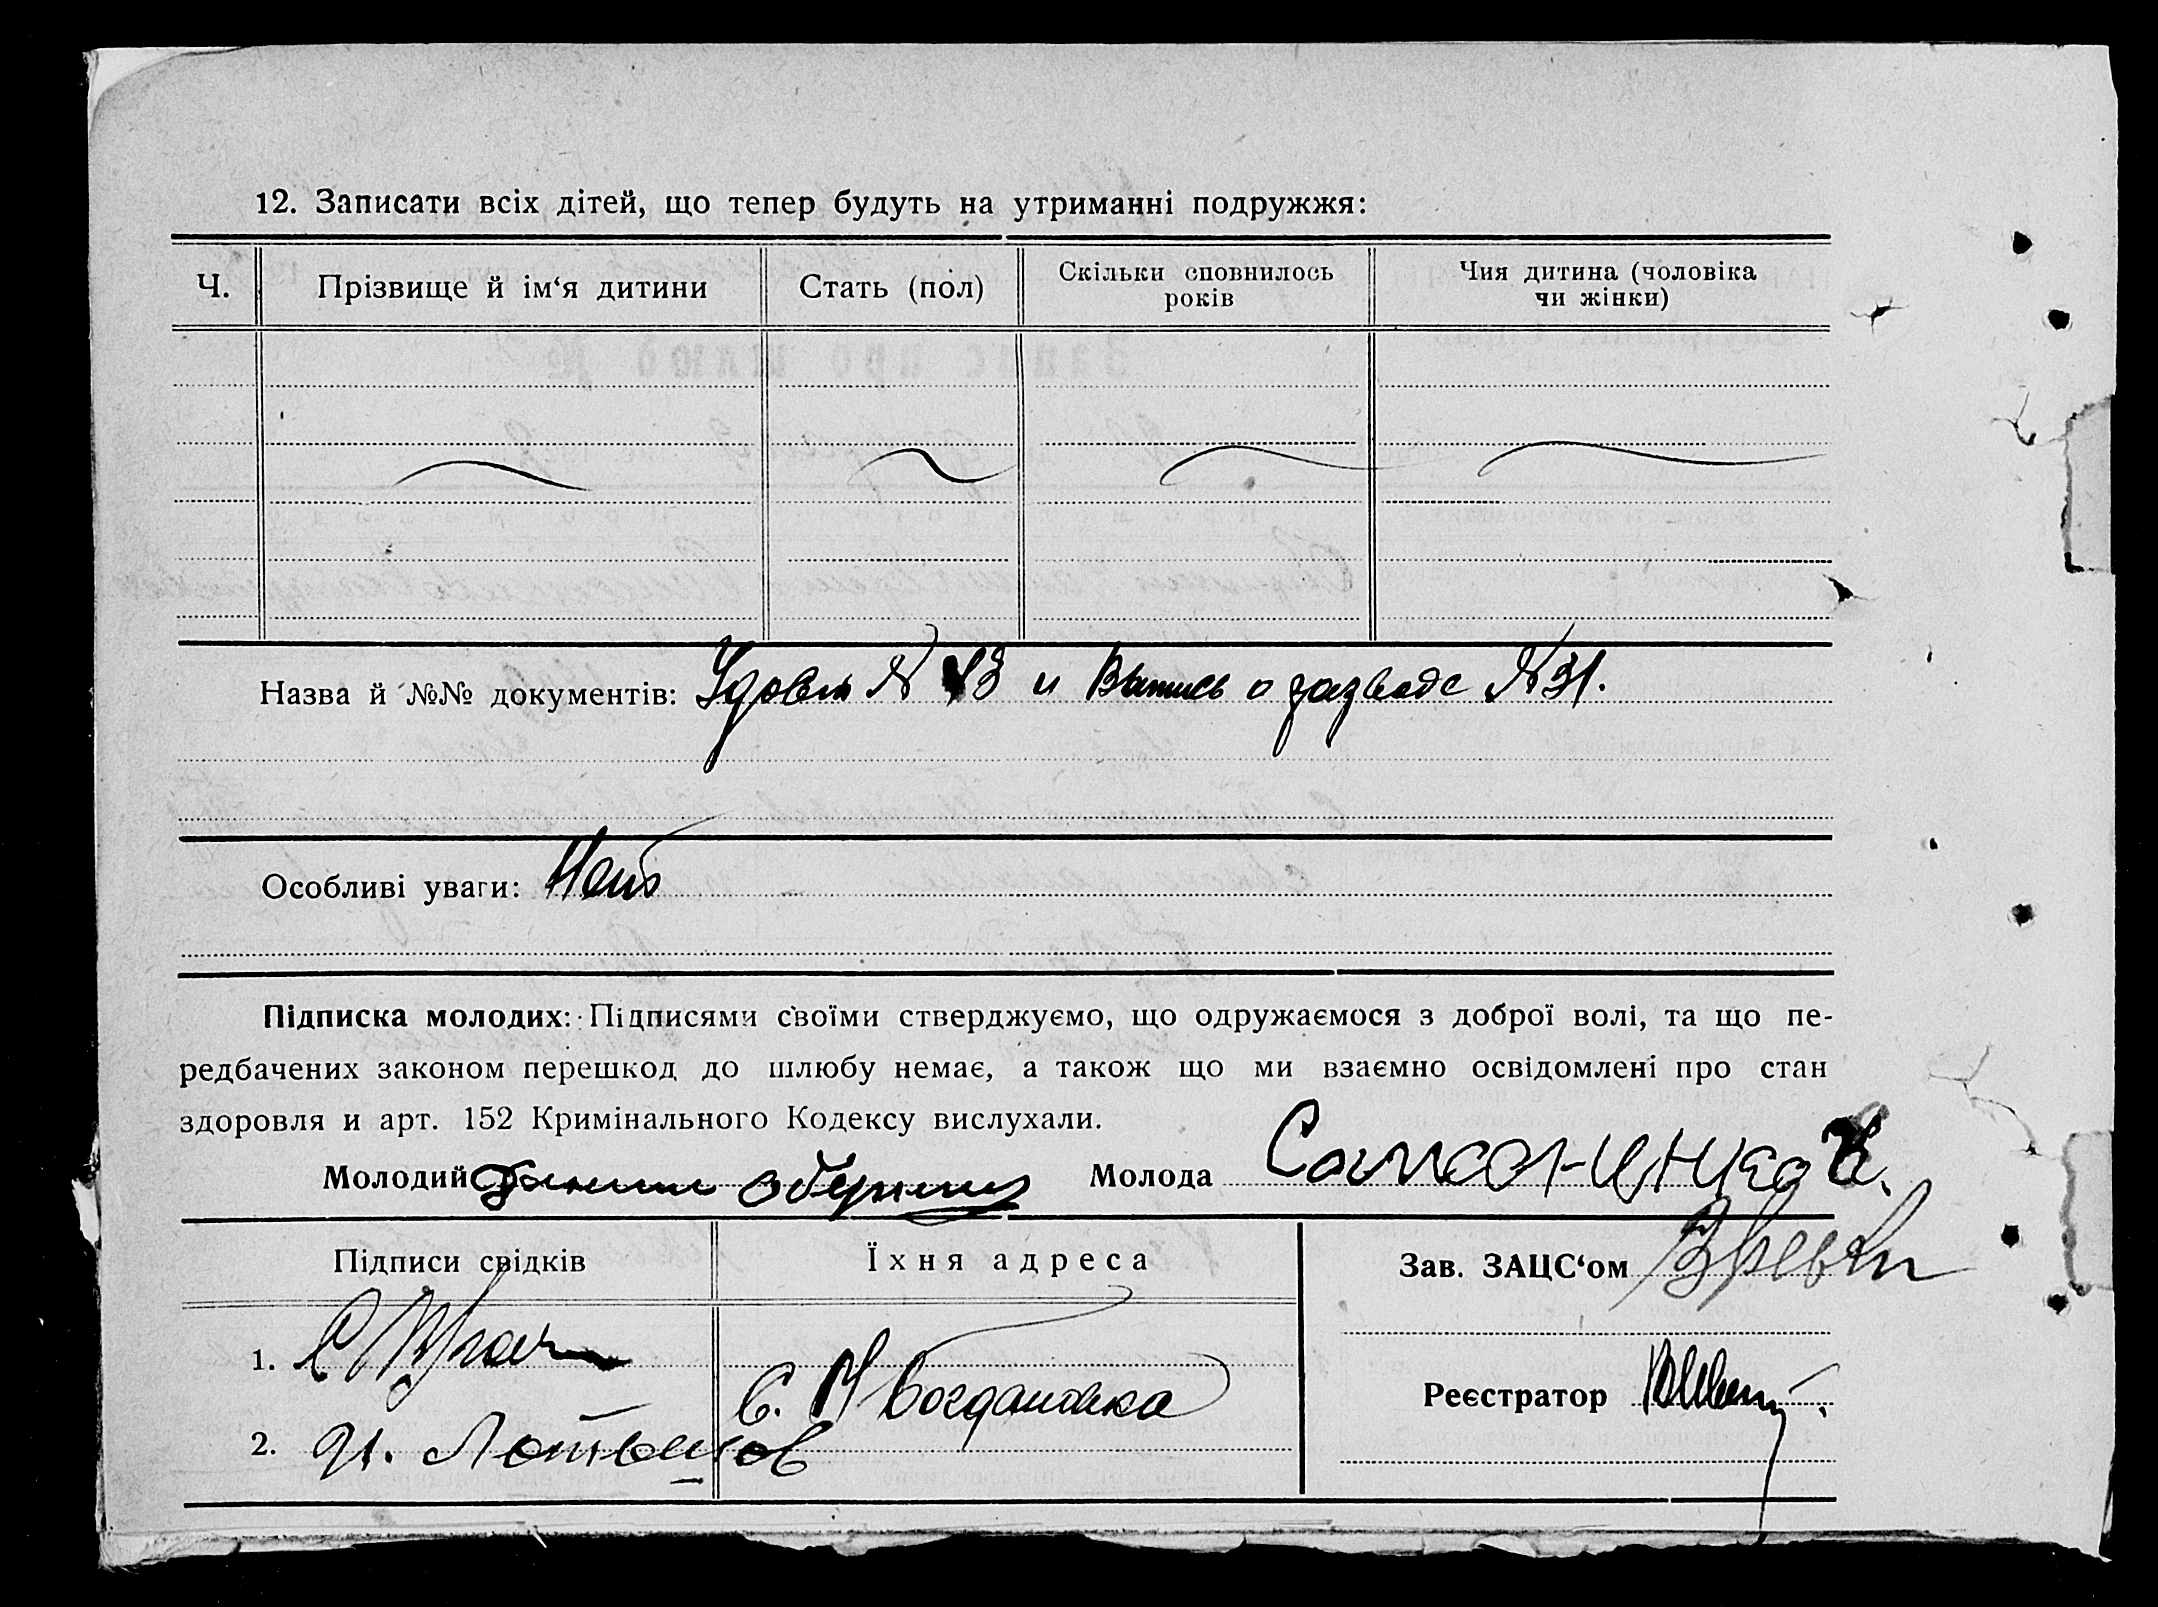 12. Записати всіх дітей, що тепер будуть на утриманні подружжя:
Ч.
Прізвище й ім‘я дитини
Стать (пол)
Скільки сповнилось
років
Чия дитина (чоловіка
чи жінки)
Назва й №№ документів: Удовл № 13 и Выпись о разводе № 31.
Особливі уваги: Нет
Підписка молодих: Підписями своїми стверджуємо, що одружаємося з доброї волі, та що пе-
редбачених законом перешкод до шлюбу немає, а також що ми взаємно освідомлені про стан
здоровля и арт. 152 Кримінального Кодексу вислухали.
Молодий
Молода Самсоненкова
Підписи свідків
Їхня адреса
Зав. ЗАЦС‘ом
1.
с. Н Богдановка
Реєстратор
2.